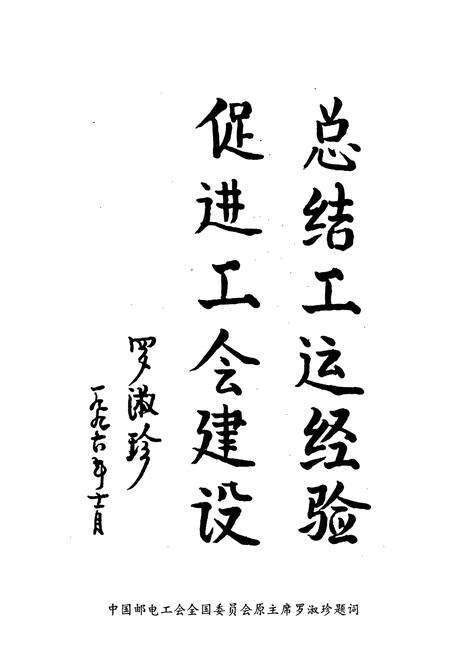 总结工运经验
促进工会建设
罗淑珍
一九九六年十一月
中国邮电工会全国委员会原主席罗淑珍题词